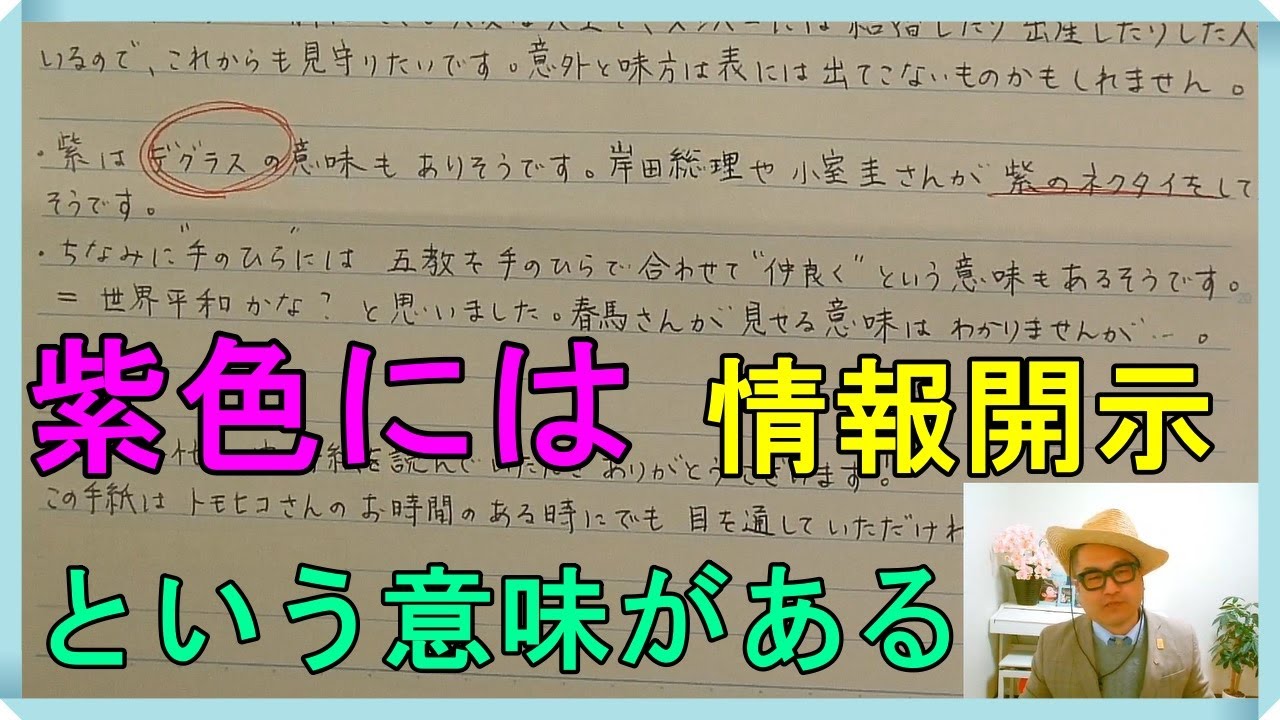 には結婚したり出産したりした人
いるので、これからも見守りたいです。意外と味方は表には出てこないものかもしれません。
・紫はデグラスの意味もありそうです。岸田総理や小室圭さんが紫のネクタイをして
そうです。
・ちなみに"手のひら"には 五教を手のひらで合わせて"仲良く"という意味もあるそうです。
= 世界平和かな? と思いました。春馬さんが見せる意味はわかりませんが…。
紫色には 情報開示
を読んで ありがとうございます。
この手紙はトモヒコさんのお時間のある時にでも 目を通していただけれ
という意味がある